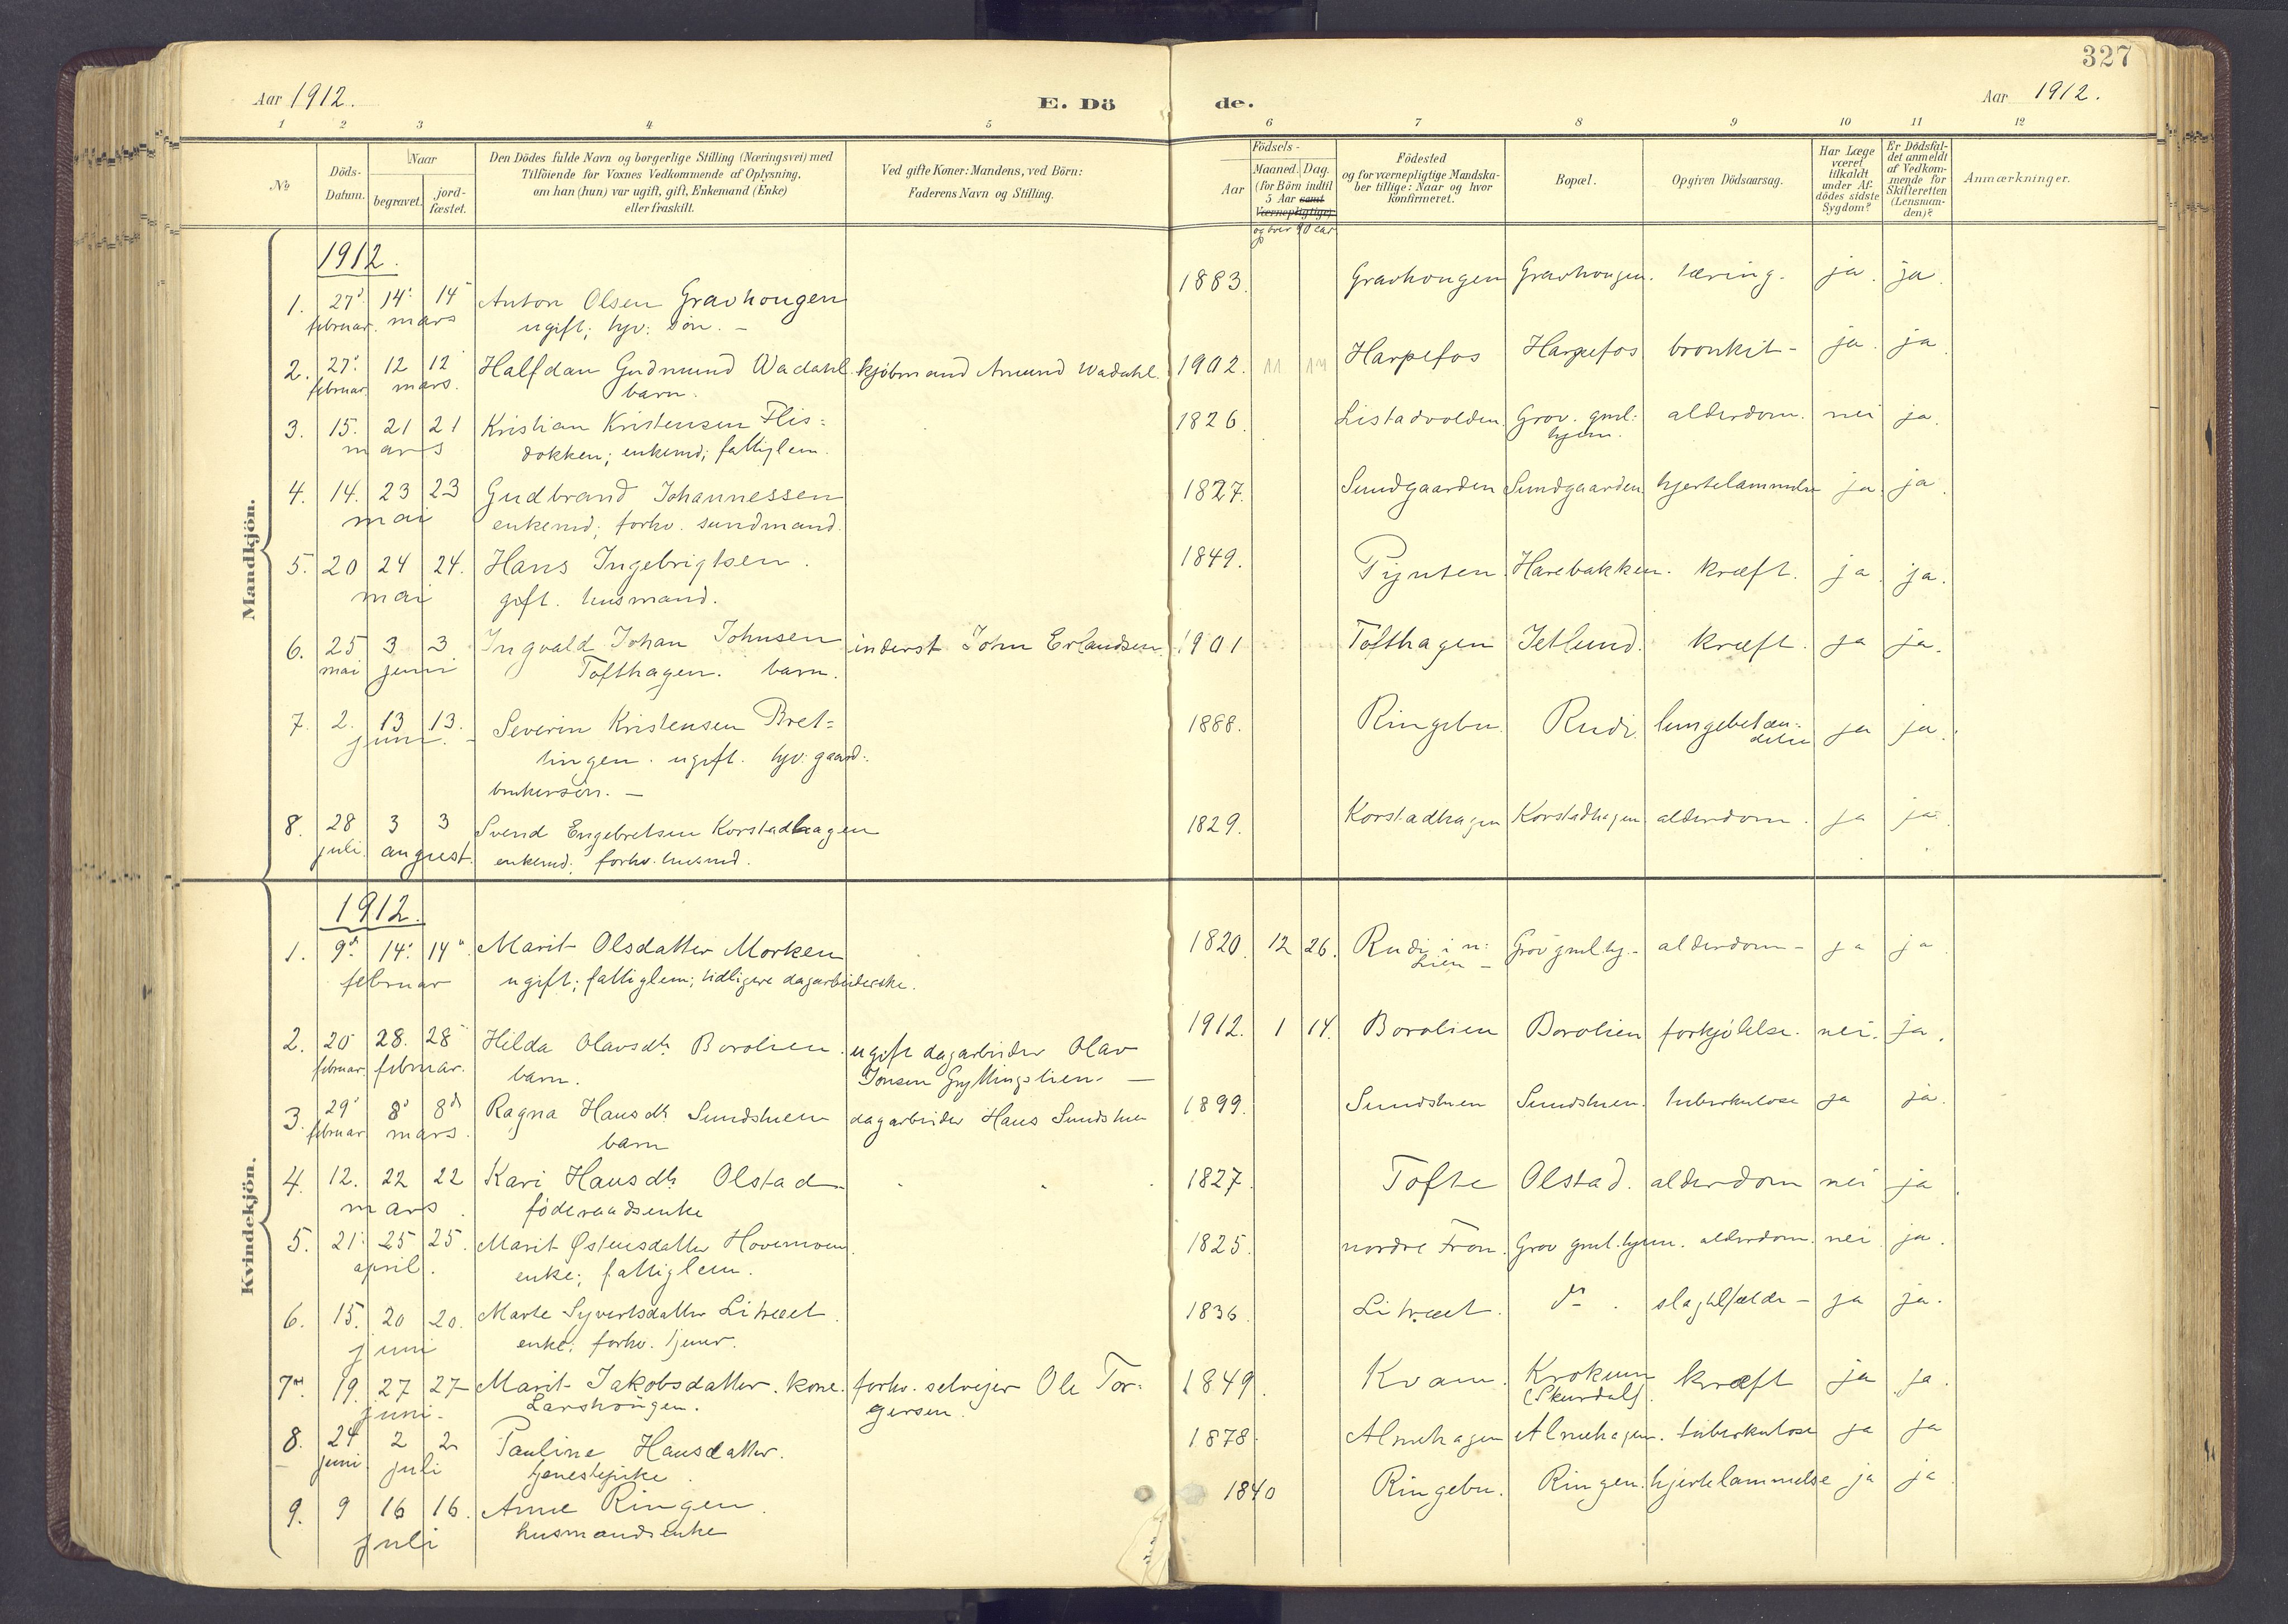 327
Aar 1912.
E. Dö de.
Aar 1912.
1 2 3 4 5 6 7 8 9 10 11 12
No
Döds-
Datum.
Naar
begravet.
jord-
fæstet.
Den Dödes fulde Navn og borgerlige Stilling (Næringsvei) med
Tilföiende for Voxnes Vedkommende af Oplysning,
om han (hun) var ugift, gift, Enkemand (Enke)
eller fraskilt.
Ved gifte Koner: Mandens, ved Börn:
Faderens Navn og Stilling.
Födsels-
Aar
Maaned. Dag.
(for Börn indtil
5 Aar samt
Værnepligtige)
og over 90 aar
Födested
og for værnepligtige Mandska-
ber tillige: Naar og hvor
konfirmeret.
Bopæl.
Opgiven Dödsaarsag.
Har Læge
været
tilkaldt
under Af-
dödes sidste
Sygdom?
Er Dödsfal-
det anmeldt
af Vedkom-
mende for
Skifteretten
(Lensman-
den)?
Anmærkninger.
Mandkjön.
1912.
1. 27. 14. 14 Anton Olsen Gravhougen 1883. Gravhougen Gravhougen. tæring. ja. ja.
februar. mars ugift; hjv: søn. -
2. 27. 12 12 Halfdan Gudmund Wadahl. kjøbmand Amund Wadahl. 1902. 11 Harpefos Harpefos bronkit- ja. ja.
februar. mars. barn.
3. 15. 21 21 Kristian Kristensen Flis= 1826. Listadvolden. Grov. gml: alderdom. nei ja.
mars dokken; enkemd; fattiglem. hjem.
4. 14. 23 23 Gudbrand Johannessen 1827. Sundgaarden Sundgaarden hjertelammelse ja. ja.
mai enkemd; forhv. sundmand.
5. 20 24 24. Hans Ingebrigtsen. 1849. Pynten. Harebakken. kræft. ja. ja.
mai gift. husmand.
6. 25 3 3 Ingvald Johan Johnsen inderst John Erlandsen. 1901 Tofthagen Jetlund. kræft. ja ja.
mai juni Tofthagen. barn.
7. 2. 13 13. Severin Kristensen Bret= 1888. Ringebu Rudi. lungebetæn-
juni. lingen. ugift. hjv: gaard: delse ja ja.
brukersøn. -
8. 28 3 3 Svend Engebretsen Korstadhagen 1829. Korstadhagen Korstadhagen alderdom. ja ja.
juli. august. enkemd; forhv. husmd.
Kvindekjön.
1912.
1. 9d. 14. 14. Marit Olsdatter Morken 1820. 12 26. Rudi i n: Grov gml.hj.- alderdom- ja ja
februar ugift; fattiglem; tidligere dagarbeiderske. Lien -
2. 20 28. 28 Hilda Olavsdtr. Borolien. ugift dagarbeider Olav 1912. 1 14. Borolien Borolien forkjølelse. nei. ja.
februar. februar. barn. Jonsen Gryttingslien. -
3. 29 8 8d Ragna Hansdtr. Sundstuen dagarbeider Hans Sundstuen 1899. Sundstuen Sundstuen. tuberkulose ja ja.
februar mars. barn
4. 12. 22 22 Kari Hansdtr. Olstad 1827. Tofte Olstad. alderdom nei ja
mars. føderaadsenke
5. 21. 25 25. Marit Østensdatter Hovemoen. 1825. nordre Fron. Grov gml.hjem. alderdom. nei. ja.
april. enke; fattiglem.
6. 15. 20 20. Marte Syvertsdatter Litræet. 1836. Litræet. do. slagtilfælde- ja ja.
juni enke; forhv. tjener.
7. 19. 27 27 Marit Jakobsdatter. kone. forhv. selveier Ole Tor: 1849. Kvam. Krokum kræft ja ja.
juni. Larshöugen. gersen. (Skurdal).
8. 24 2 2 Pauline Hansdatter. 1878. Almehagen Almehagen. tuberkulose ja ja
juni juli tjenestepike.
9. 9 16 16. Anne Ringen. 1840 Ringebu. Ringen. hjertelammelse ja ja.
juli husmandsenke